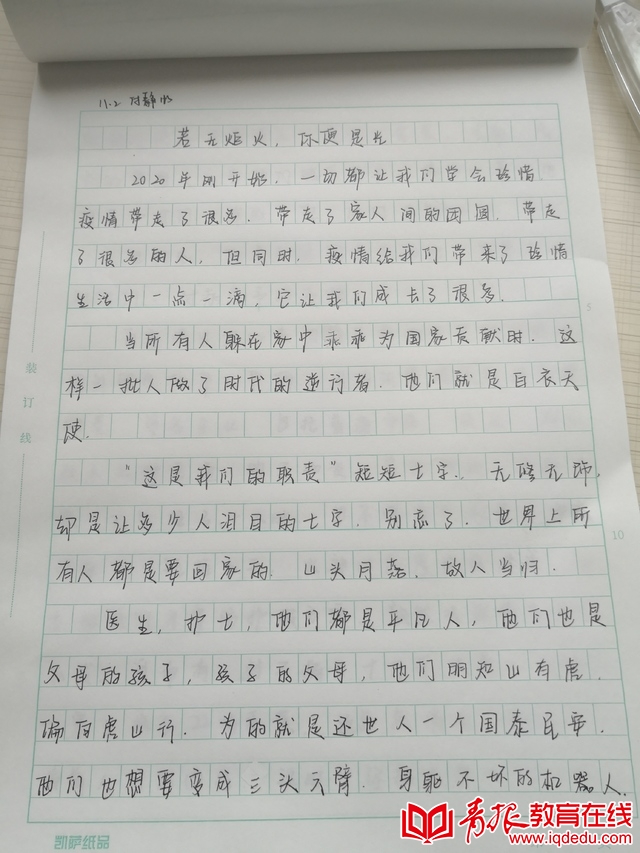 11.2
若无炬火，你便是光
2020年刚开始，一切都让我们学会珍惜.
疫情带走了很多.带走了家人间的团圆.带走
了很多的人，但同时.疫情给我们带来了珍惜
生活中一点一滴，它让我们成长了很多.
当所有人躲在家中乖乖为国家贡献时.这
样一批人做了时代的逆行者.他们就是白衣天
使.
“这是我们的职责”短短七字.无修无饰，
却是让多少人泪目的七字.别忘了.世界上所
有人都是要回家的.山头月落，故人当归.
医生，护士，他们都是平凡人，他们也是
父母的孩子，孩子的父母，他们明知山有虎.
偏向虎山行.为的就是还世人一个国泰民安.
他们也想要变成三头六臂.身躯不坏的机器人.
装订线
5
10
凯萨纸品
青报教育在线
www.iqdedu.com